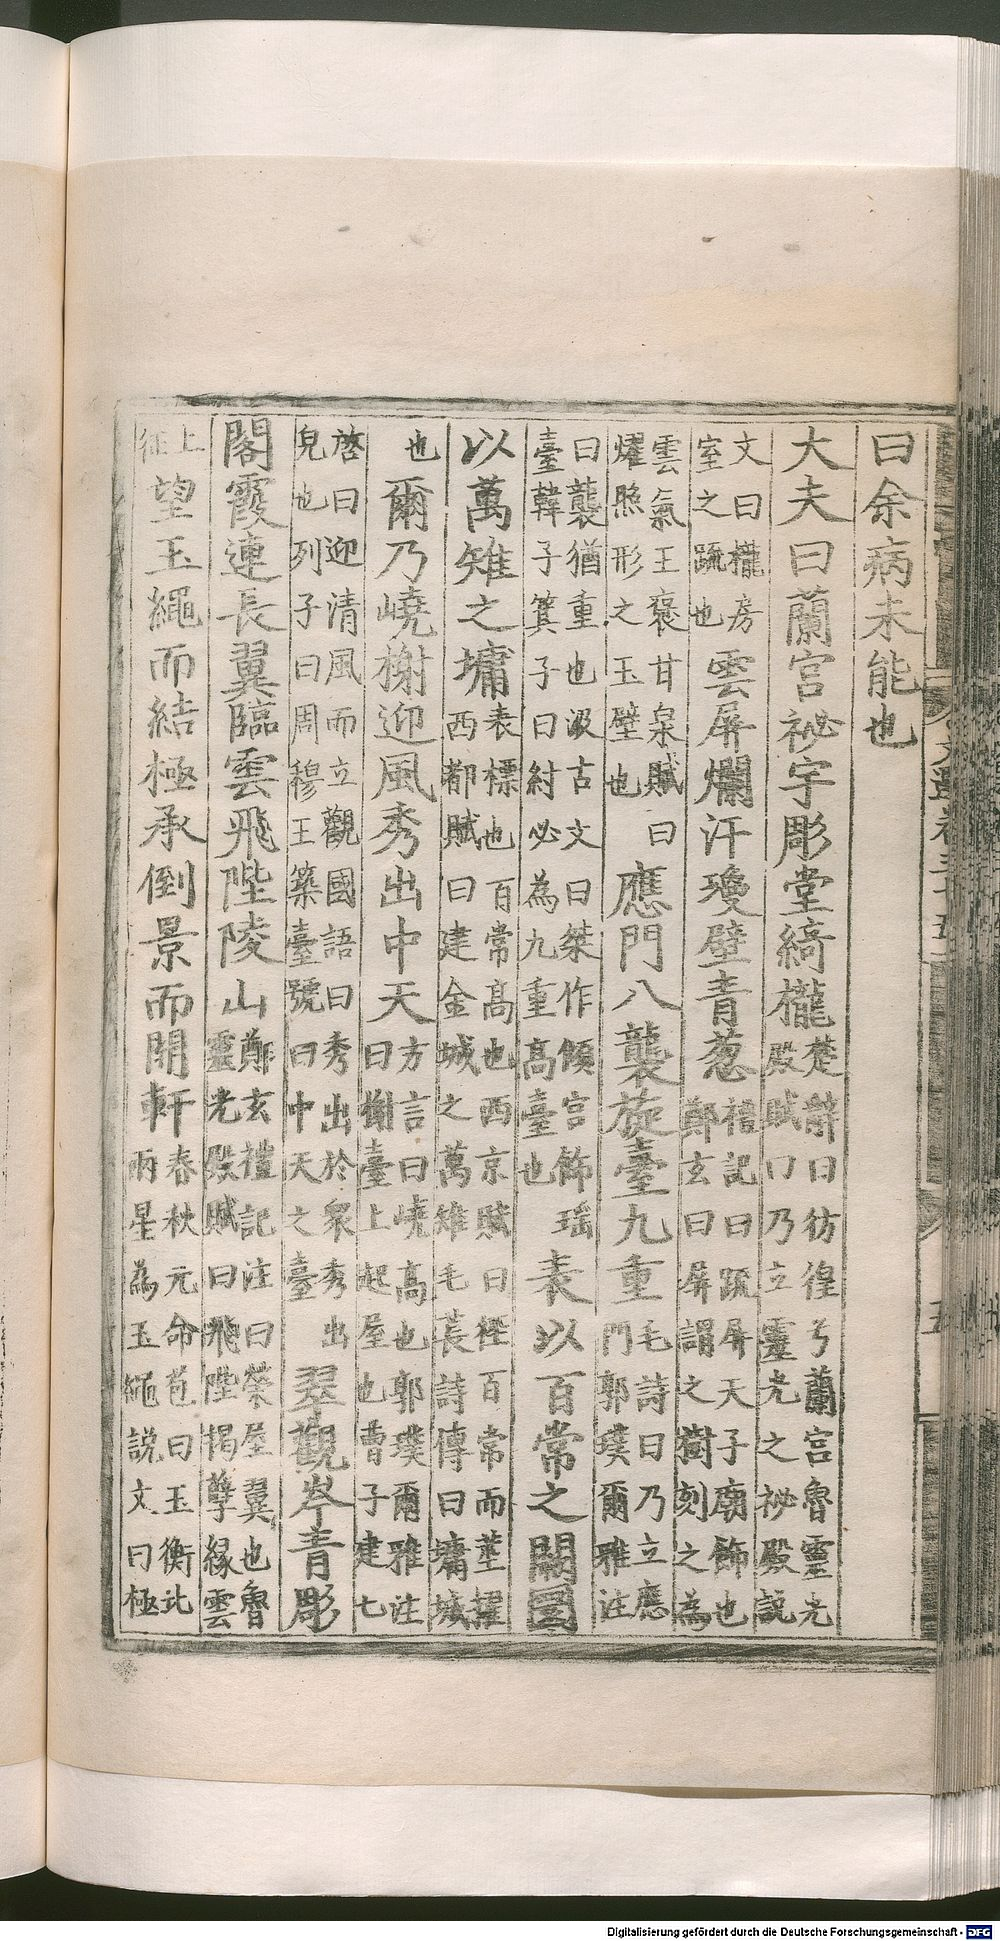 曰余病未能也
大夫曰蘭宮祕宇彫堂綺櫳楚辭曰彷徨兮蘭宮魯靈光殿賦曰乃立靈光之祕殿說
文曰櫳房室之踈也雲屏爛汗瓊壁青蔥禮記曰疏屏天子廟飾也鄭玄曰屏謂之樹刻之為
雲氣王褒甘泉賦曰燿照形之玉壁也應門八襲旋臺九重毛詩曰乃立應門郭璞爾雅注
曰襲猶重也汲古文曰桀作傾宮飾瑶臺韓子箕子曰紂必為九重高臺也表以百常之闕圍
以萬雉之墉表標也百常高也西京賦曰徑百常而莖擢西都賦曰建金城之萬雉毛萇詩傳曰墉城
也爾乃嶢榭迎風秀出中天方言曰嶢高也郭璞爾雅注曰榭臺上起屋也曹子建七
啓曰迎清風而立觀國語曰秀出於衆秀出皃也列子曰周穆王築臺號曰中天之臺翠觀岑青彫
閣霞連長翼臨雲飛陛陵山鄭玄禮記注曰榮屋翼也魯靈光殿賦曰飛陛揭孽緣雲
上征望玉繩而結極承倒景而開軒春秋元命苞曰玉衡北兩星為玉繩說文曰極
五
Digitalisierung gefördert durch die Deutsche Forschungsgemeinschaft - DFG